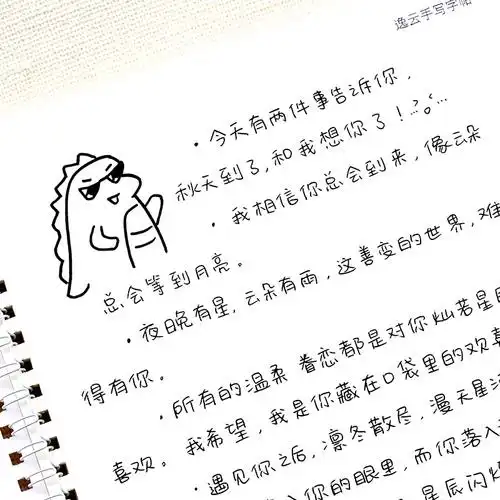 逸云手写字帖
· 今天有两件事告诉你,
秋天到了,和我想你了!
· 我相信你总会到来,像云朵
总会等到月亮。
· 夜晚有星,云朵有雨,这善变的世界,难
得有你。
· 所有的温柔 眷恋都是对你灿若星
喜欢。 我希望,我是你藏在口袋里的欢喜
· 遇见你之后,凛冬散尽,漫天星
入你的眼里,而你落入
星辰闪